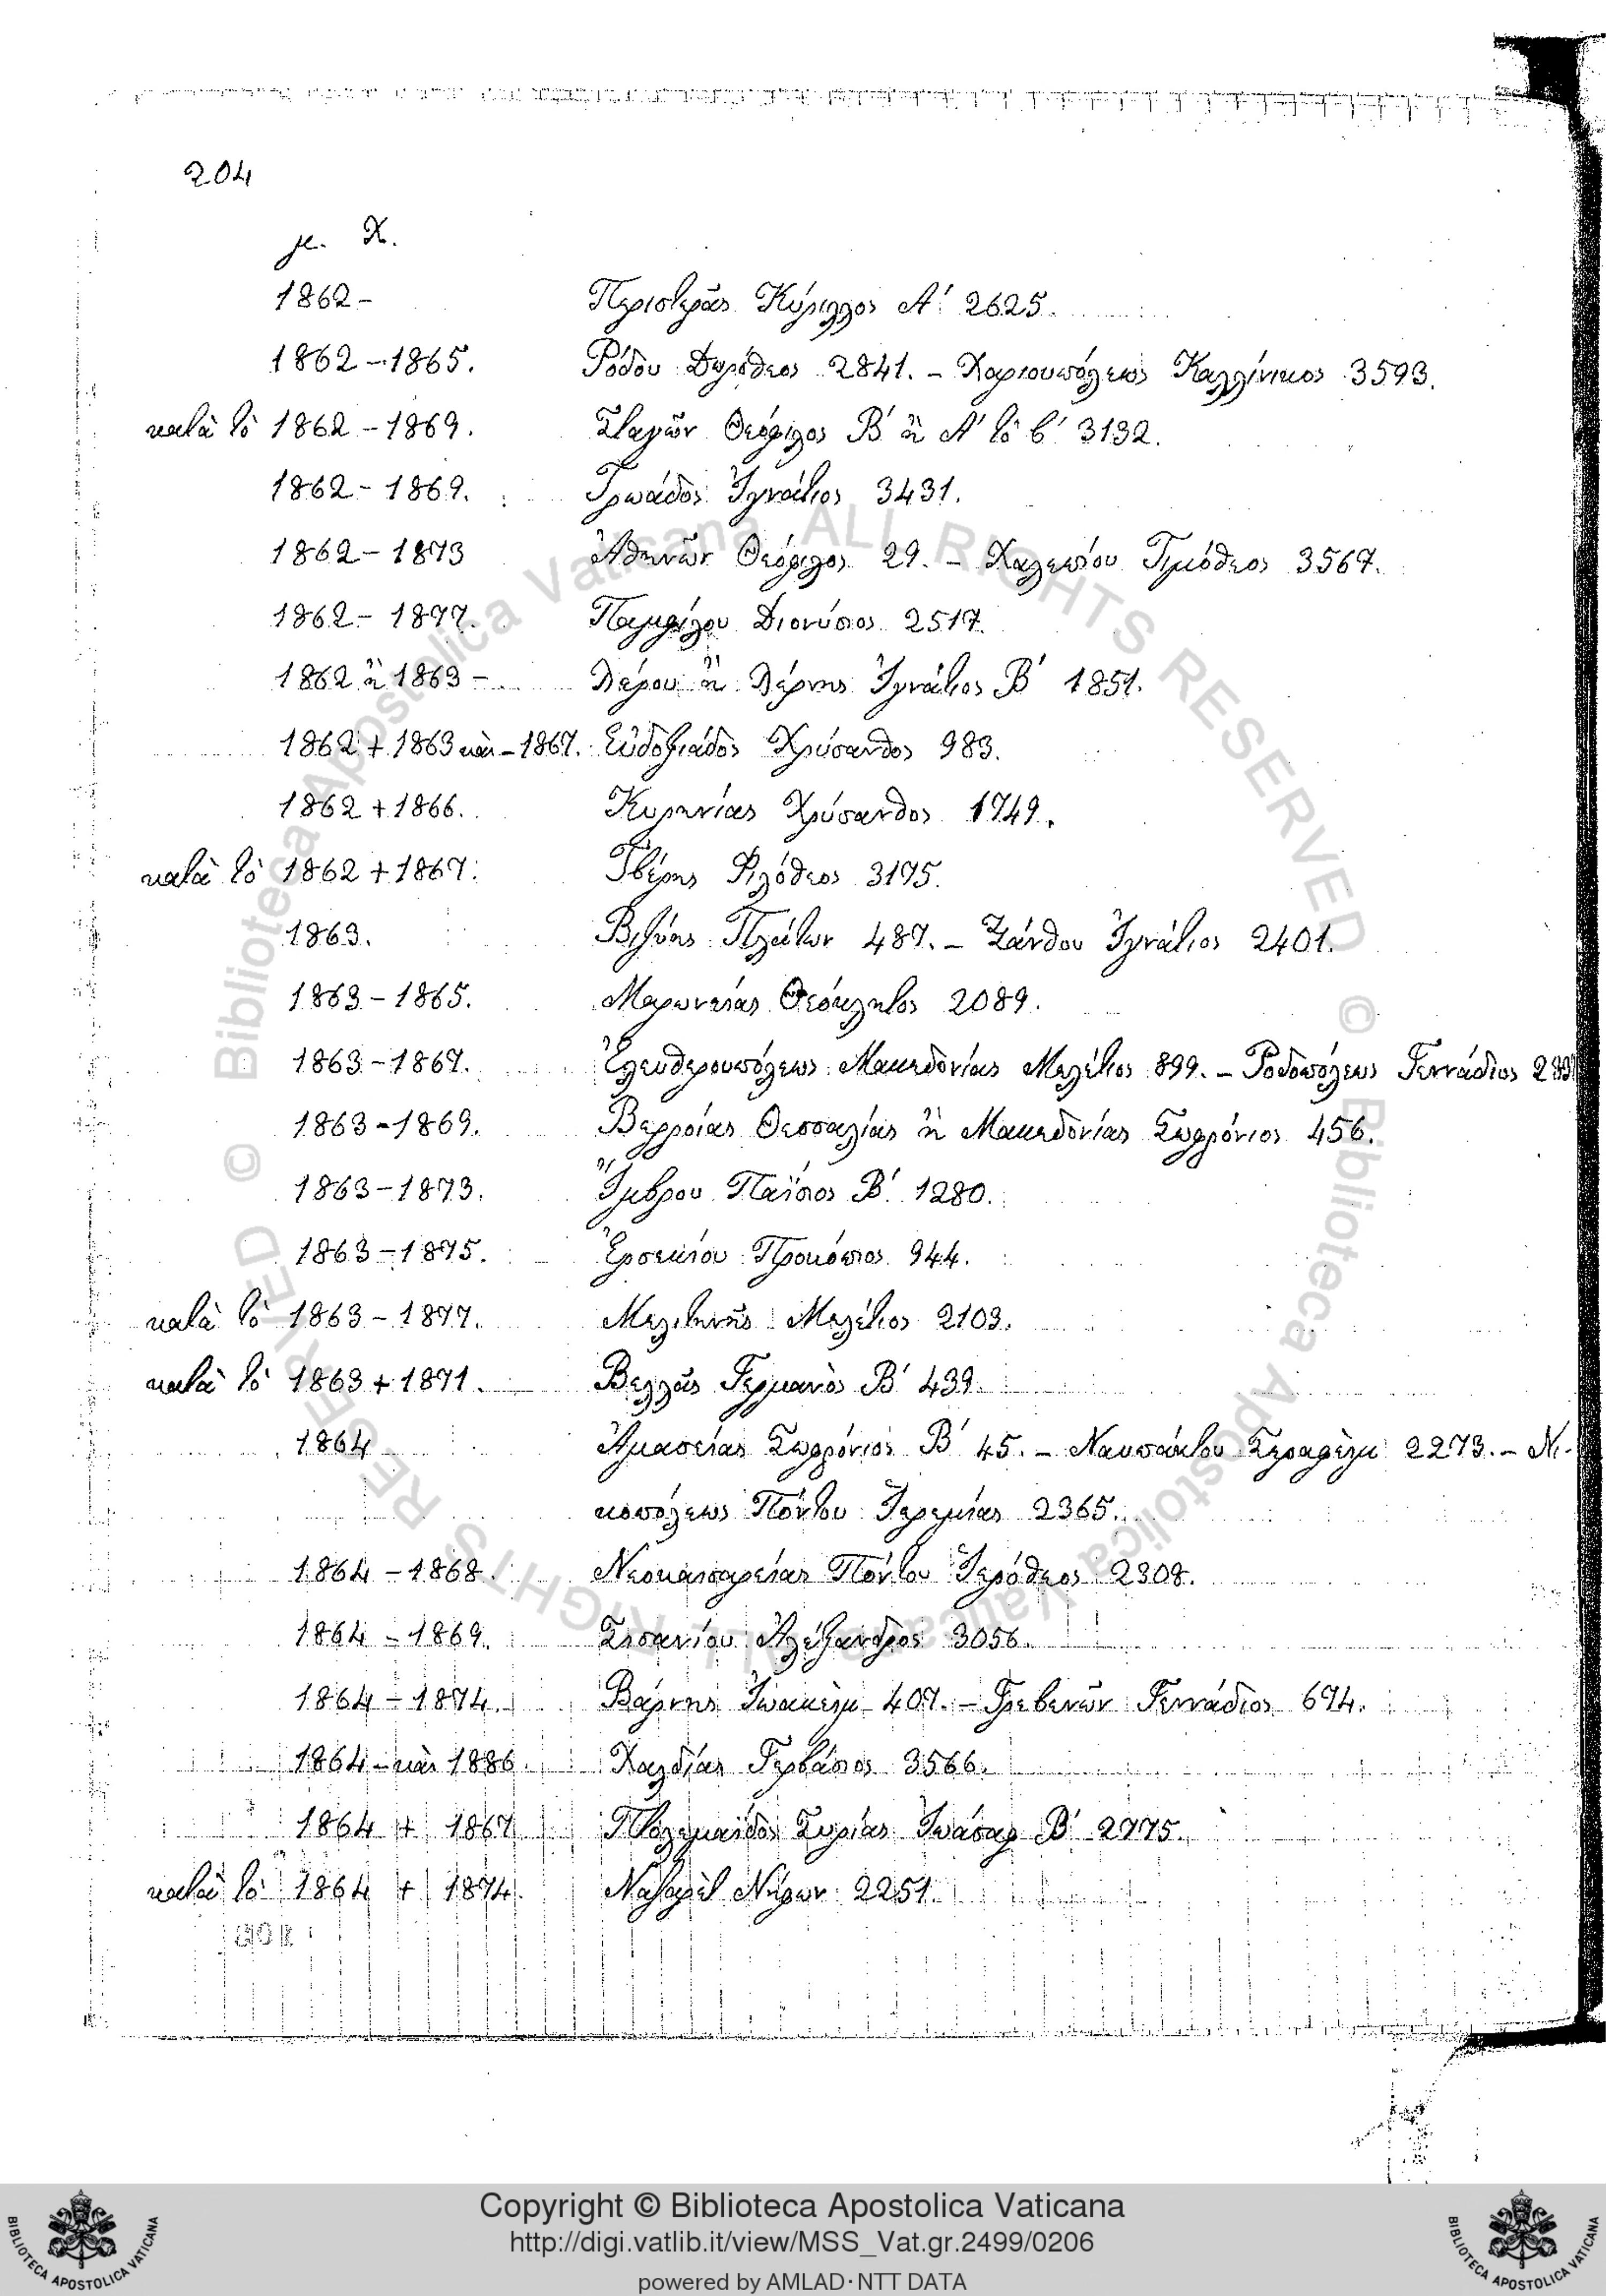 204
μ. Χ.
1862 – Περιστερᾶς Κύριλλος Α΄ 2625.
1862 – 1865. Ῥόδου Δωρόθεος 2841. – Χαριουπόλεως Καλλίνικος 3593.
κατὰ τὸ 1862 – 1869. Σταγῶν Θεόφιλος Β΄ ἢ Α΄ τὸ β΄ 3132.
1862 – 1869. Τρωάδος Ἰγνάτιος 3431.
1862 – 1873 Ἀθηνῶν Θεόφιλος 29. – Χαλεπίου Τιμόθεος 3567.
1862 – 1877. Παμφίλου Διονύσιος 2517.
1862 ἢ 1863 – Λέρου ἢ Λέρνης Ἰγνάτιος Β΄ 1851.
1862 + 1863 καὶ – 1867. Εὐδοξιάδος Χρύσανθος 983.
1862 + 1866. Κυρηνίας Χρύσανθος 1749.
κατὰ τὸ 1862 + 1867. Ἰβέρης Φιλόθεος 3175.
1863. Βιζύης Πλάτων 487. – Ξάνθου Ἰγνάτιος 2401.
1863 – 1865. Μαρωνείας Θεόκλητος 2089.
1863 – 1867. Ἐλευθερουπόλεως Μακεδονίας Μελέτιος 899. – Ῥοδοπόλεως Γεννάδιος
1863 – 1869. Βερροίας Θεσσαλίας ἢ Μακεδονίας Σωφρόνιος 456.
1863 – 1873. Ἴμβρου Παΐσιος Β΄ 1280.
1863 – 1875. Ἐρσεκίου Προκόπιος 944.
κατὰ τὸ 1863 – 1877. Μελιτηνῆς Μελέτιος 2103.
κατὰ τὸ 1863 + 1871. Βελλᾶς Γερμανὸς Β΄ 439.
1864 Ἀμασείας Σωφρόνιος Β΄ 45. – Ναυπάκτου Σεραφεὶμ 2273. – Νι-
κοπόλεως Πόντου Ἱερεμίας 2365.
1864 – 1868. Νεοκαισαρείας Πόντου Ἱερόθεος 2308.
1864 – 1869. Σισανίου Ἀλέξανδρος 3056.
1864 – 1874. Βάρνης Ἰωακεὶμ 407. – Γρεβενῶν Γεννάδιος 674.
1864 – καὶ 1886. Χαλδίας Γερβάσιος 3566.
1864 + 1867 Πτολεμαΐδος Συρίας Ἰωάσαφ Β΄ 2775.
κατὰ τὸ 1864 + 1874. Ναζαρὲτ Νήφων 2251.
Copyright © Biblioteca Apostolica Vaticana
http://digi.vatlib.it/view/MSS_Vat.gr.2499/0206
powered by AMLAD·NTT DATA